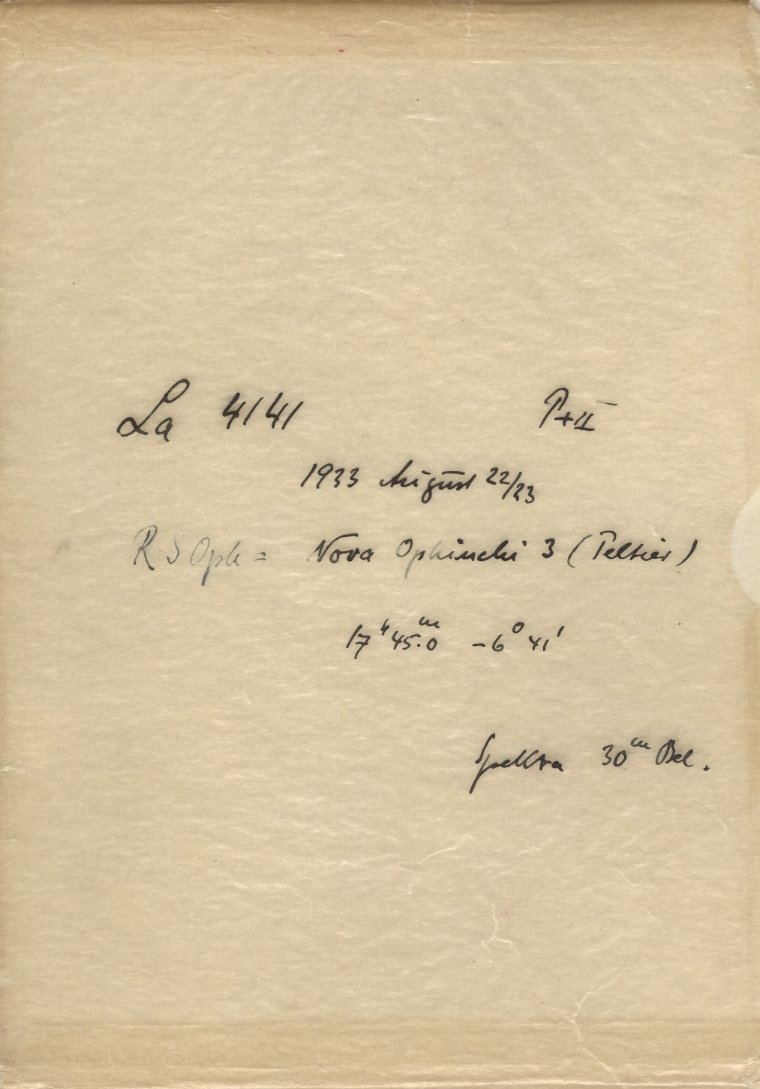 La 4141 P+II
1933 August 22/23
R S Oph = Nova Ophiuchi 3 (Peltier)
17ʰ 45.ᵐ0 -6° 41'
Spektra 30ᵐ Bel.